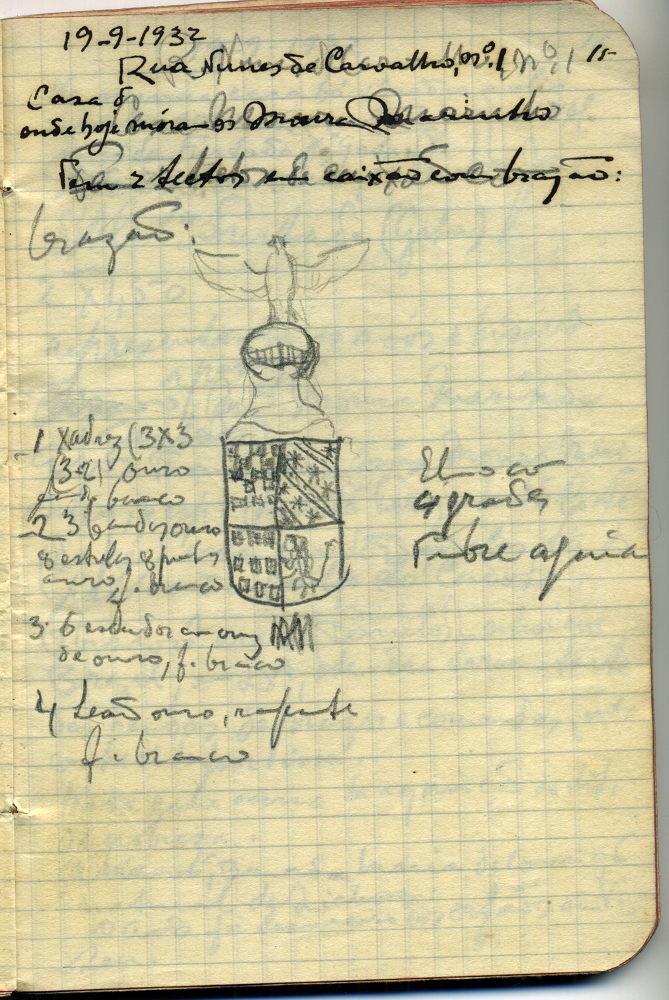 19-9-1932
Rua Nunes de Carvalho, nº 1
Casa
onde hoje móram os Moura Marinho
Tem 2 tectos em caixão com brazão:
brazão:
1 xadrez (3x3
(3+2) ouro
f. de branco
2 3 bandas ouro
8 estrelas 8 pontas
ouro, f. branco
3. 6 escudos em cruz
de ouro, f. branco
4 Leão ouro, rapante
f. branco
Elmo com
4 grades
Timbre aguia